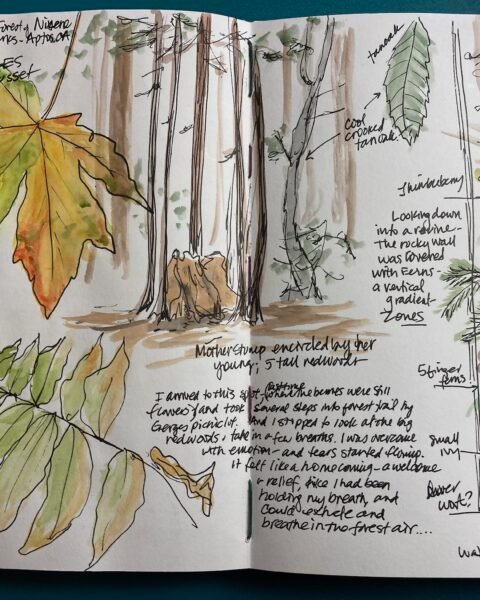 Forest of Nisene
Marks - Aptos CA
tanoak
cool
crooked
tanoak
Thimbleberry
Looking down
into a ravine -
The rocky wall
was covered
with Ferns -
a vertical
gradient -
Zones
5 finger
ferns
small
ivy
Mother stump encircled by her
young; 5 tall redwoods
I arrived to this spot
flowers) and took several steps into forest trail by
Georges picnic lot. And I stopped to look at the big
redwoods & take in a few breaths. I was overcome
with emotion - and tears started flowing.
It felt like a homecoming - a welcome
& relief, like I had been
holding my breath, and
could exhale and
breathe in the forest air....